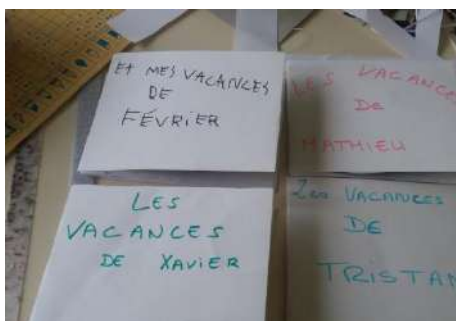 ET MES VACANCES
DE
FÉVRIER
LES VACANCES
DE
MATHIEU
LES
VACANCES
DE XAVIER
Les VACANCES
DE
TRISTAN